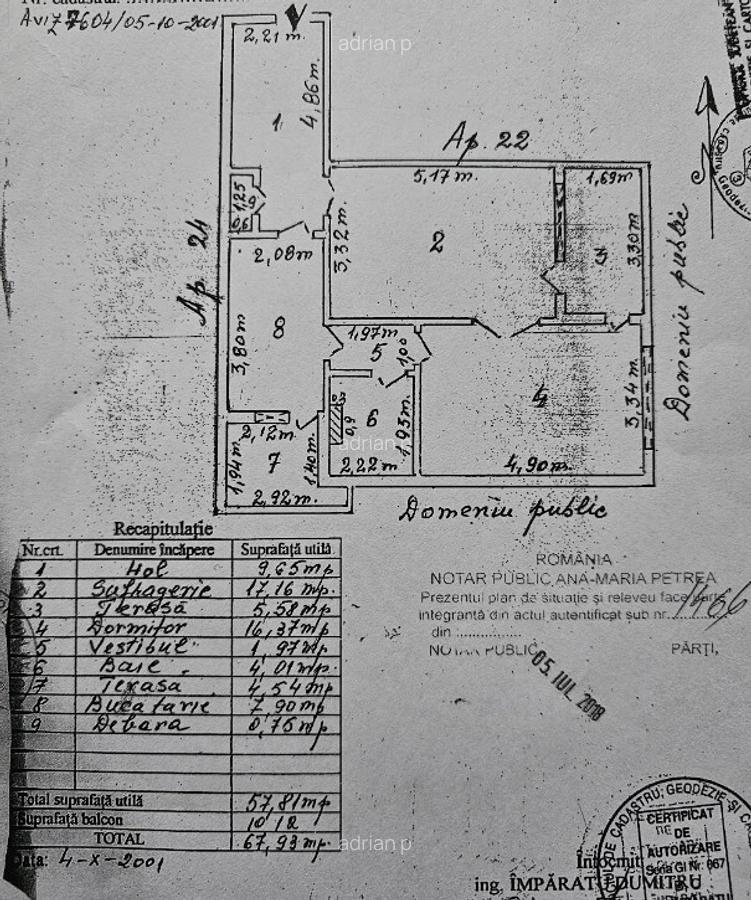 Aviz 7604/05-10-2001
2,21 m.
adrian p
4,86 m.
1
Ap. 22
5,17 m.
1,69 m.
1,25
9
0,61
Ap. 24
2,08 m.
3,32 m.
2
3
3,30 m.
Domeniu public
3,80 m.
8
1,97 m.
5
1,00
4
3,34 m.
0,3
0,9
6
1,93 m.
adrian p
2,12 m.
1,94 m.
7
1,40 m.
2,22 m.
4,90 m.
2,92 m.
Domeniu public
Recapitulație
Nr.crt. Denumire încăpere Suprafață utilă
1 Hol 9,65 mp
2 Sufragerie 17,16 mp.
3 Terasă 5,58 mp.
4 Dormitor 16,37 mp
5 Vestibul 1,97 mp.
6 Baie 4,01 mp.
7 Terasa 4,54 mp
8 Bucatarie 7,90 mp
9 Debara 0,75 mp
Total suprafață utilă 57,81 mp
Suprafață balcon 10,12
TOTAL 67,93 mp.
Data: 4-X-2001
ROMÂNIA
NOTAR PUBLIC ANA-MARIA PETREA
Prezentul plan de situație și releveu face parte
integrantă din actul autentificat sub nr. 1466
din :...............
NOTAR PUBLIC PĂRȚI,
05. IUL. 2018
adrian p
CERTIFICAT
DE
AUTORIZARE
Seria GI Nr. 067
Întocmit
ing. ÎMPĂRATU DUMITRU